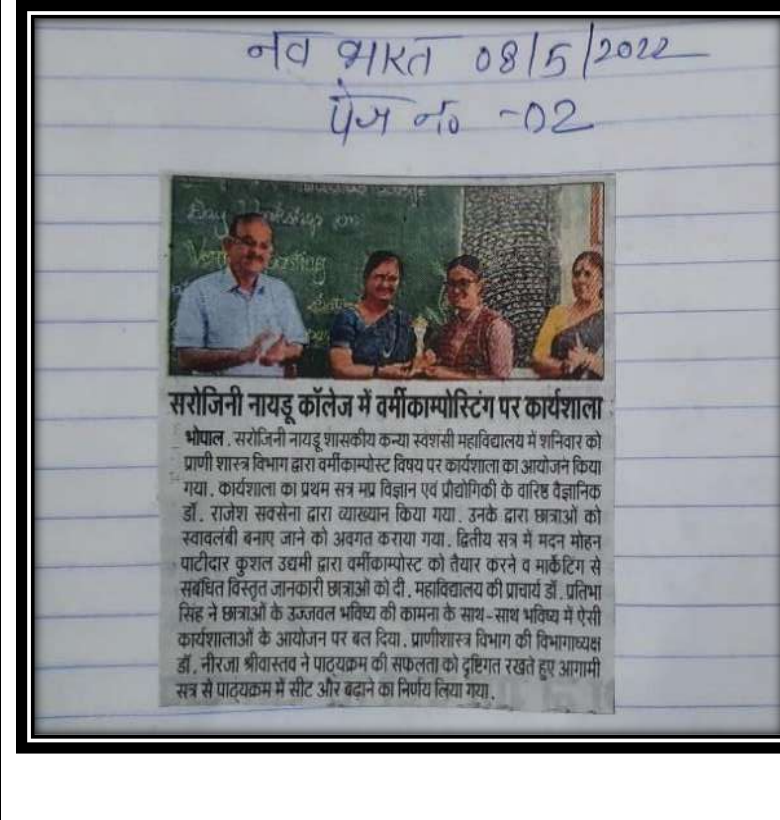 नव भारत 08/5/2022
पेज नं० -02
Day Workshop on
सरोजिनी नायडू कॉलेज में वर्मीकाम्पोस्टिंग पर कार्यशाला
भोपाल. सरोजिनी नायडू शासकीय कन्या स्वशसी महाविद्यालय में शनिवार को
प्राणी शास्त्र विभाग द्वारा वर्मीकाम्पोस्ट विषय पर कार्यशाला का आयोजन किया
गया. कार्यशाला का प्रथम सत्र मप्र विज्ञान एवं प्रौद्योगिकी के वारिष्ठ वैज्ञानिक
डॉ. राजेश सक्सेना द्वारा व्याख्यान किया गया. उनके द्वारा छात्राओं को
स्वावलंबी बनाए जाने को अवगत कराया गया. द्वितीय सत्र में मदन मोहन
पाटीदार कुशल उद्यमी द्वारा वर्मीकाम्पोस्ट को तैयार करने व मार्केटिंग से
संबंधित विस्तृत जानकारी छात्राओं को दी. महाविद्यालय की प्राचार्य डॉ. प्रतिभा
सिंह ने छात्राओं के उज्जवल भविष्य की कामना के साथ-साथ भविष्य में ऐसी
कार्यशालाओं के आयोजन पर बल दिया. प्राणीशास्त्र विभाग की विभागाध्यक्ष
डॉ. नीरजा श्रीवास्तव ने पाठ्यक्रम की सफलता को दृष्टिगत रखते हुए आगामी
सत्र से पाठ्यक्रम में सीट और बढ़ाने का निर्णय लिया गया.